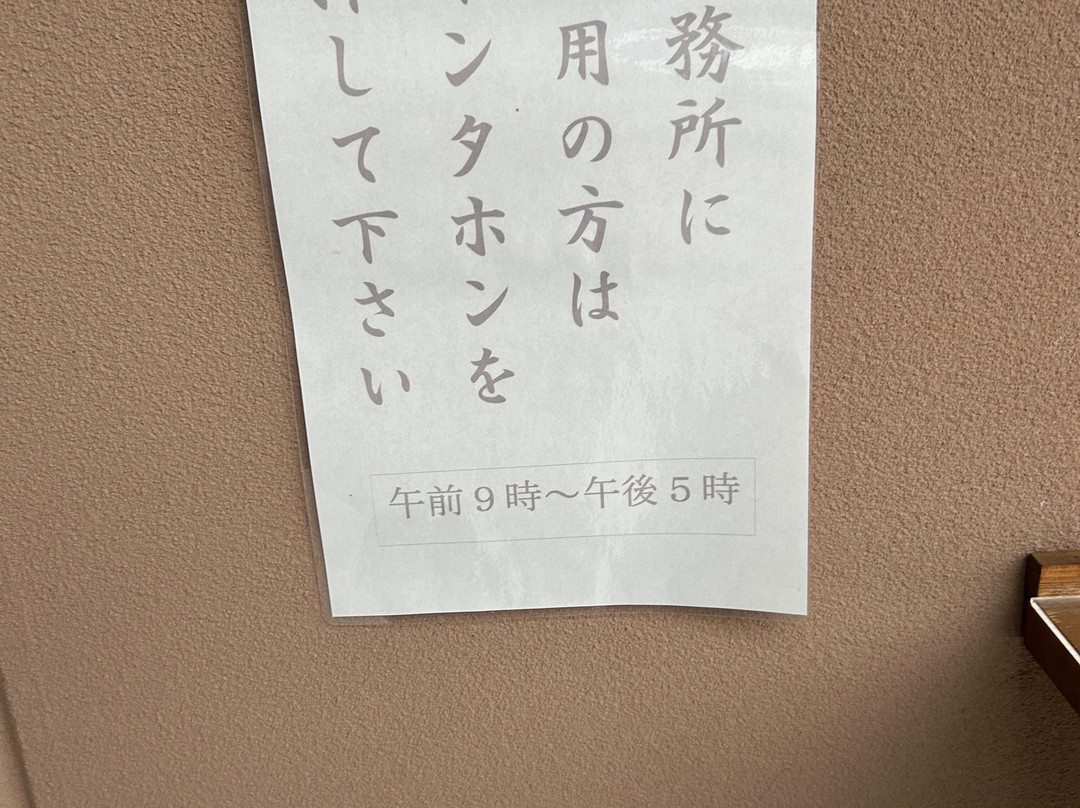 務所に
用の方は
ンタホンを
して下さい
午前９時～午後５時